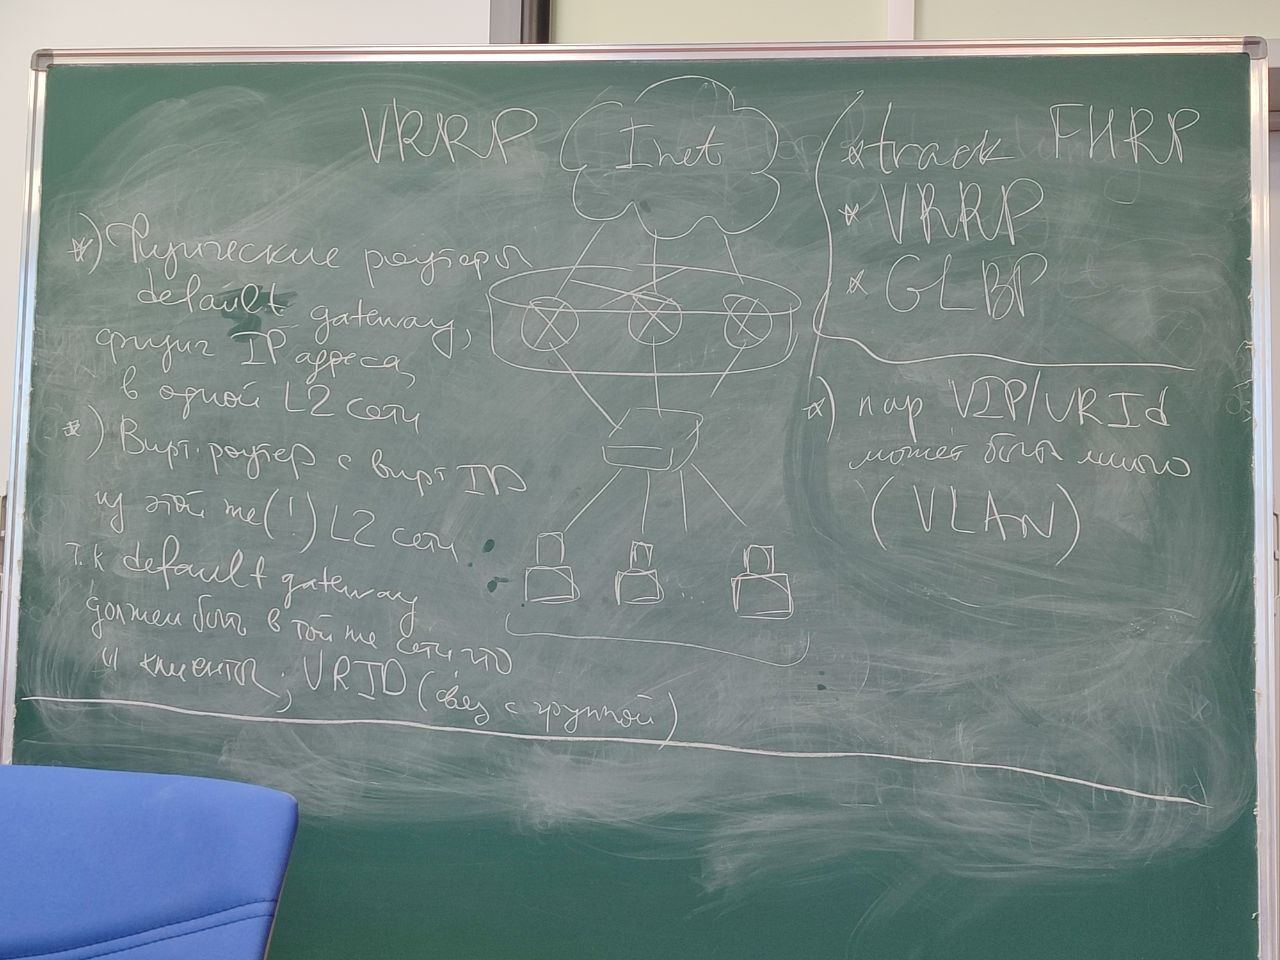 VRRP
Inet
*) Физические роутеры
default gateway,
физич IP адреса,
в одной L2 сети
*) Вирт. роутер с вирт IP
из этой же(!) L2 сети
т.к default gateway
должен быть в той же сети что
и клиенты; VRID (связ с группой)
FHRP
*track
* VRRP
* GLBP
*) пар VIP/VRId
может быть много
(VLAN)